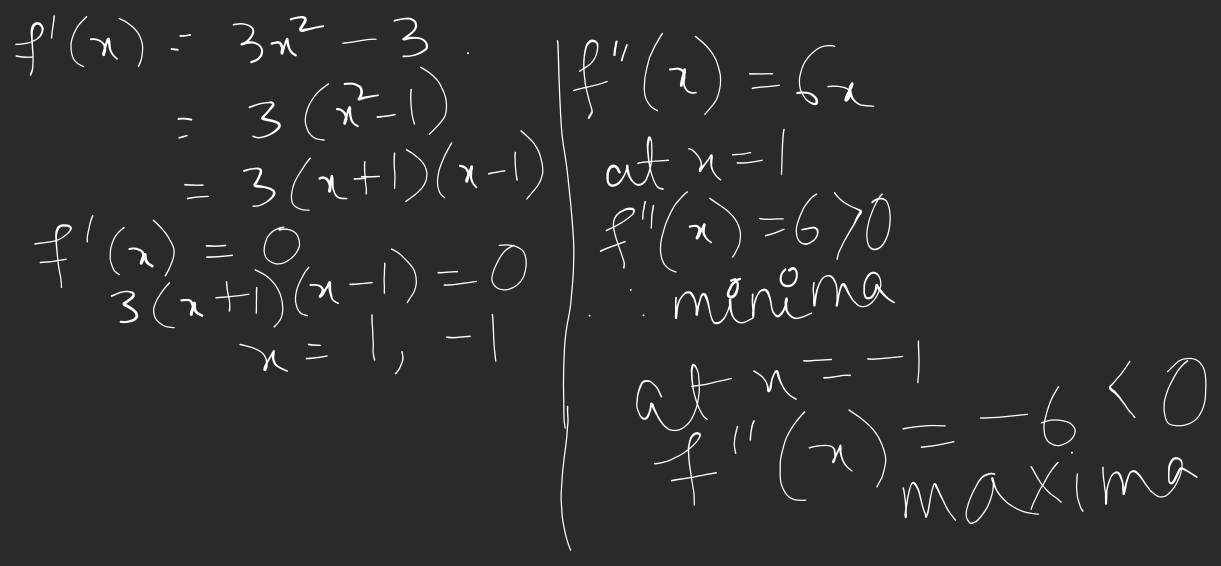 f'(x) = 3x² - 3.
= 3(x²-1)
= 3(x+1)(x-1)
f'(x) = 0
3(x+1)(x-1) = 0
x = 1, -1
f''(x) = 6x
at x = 1
f''(x) = 6 > 0
∴ minima
at x = -1
f''(x) = -6 < 0
maxima